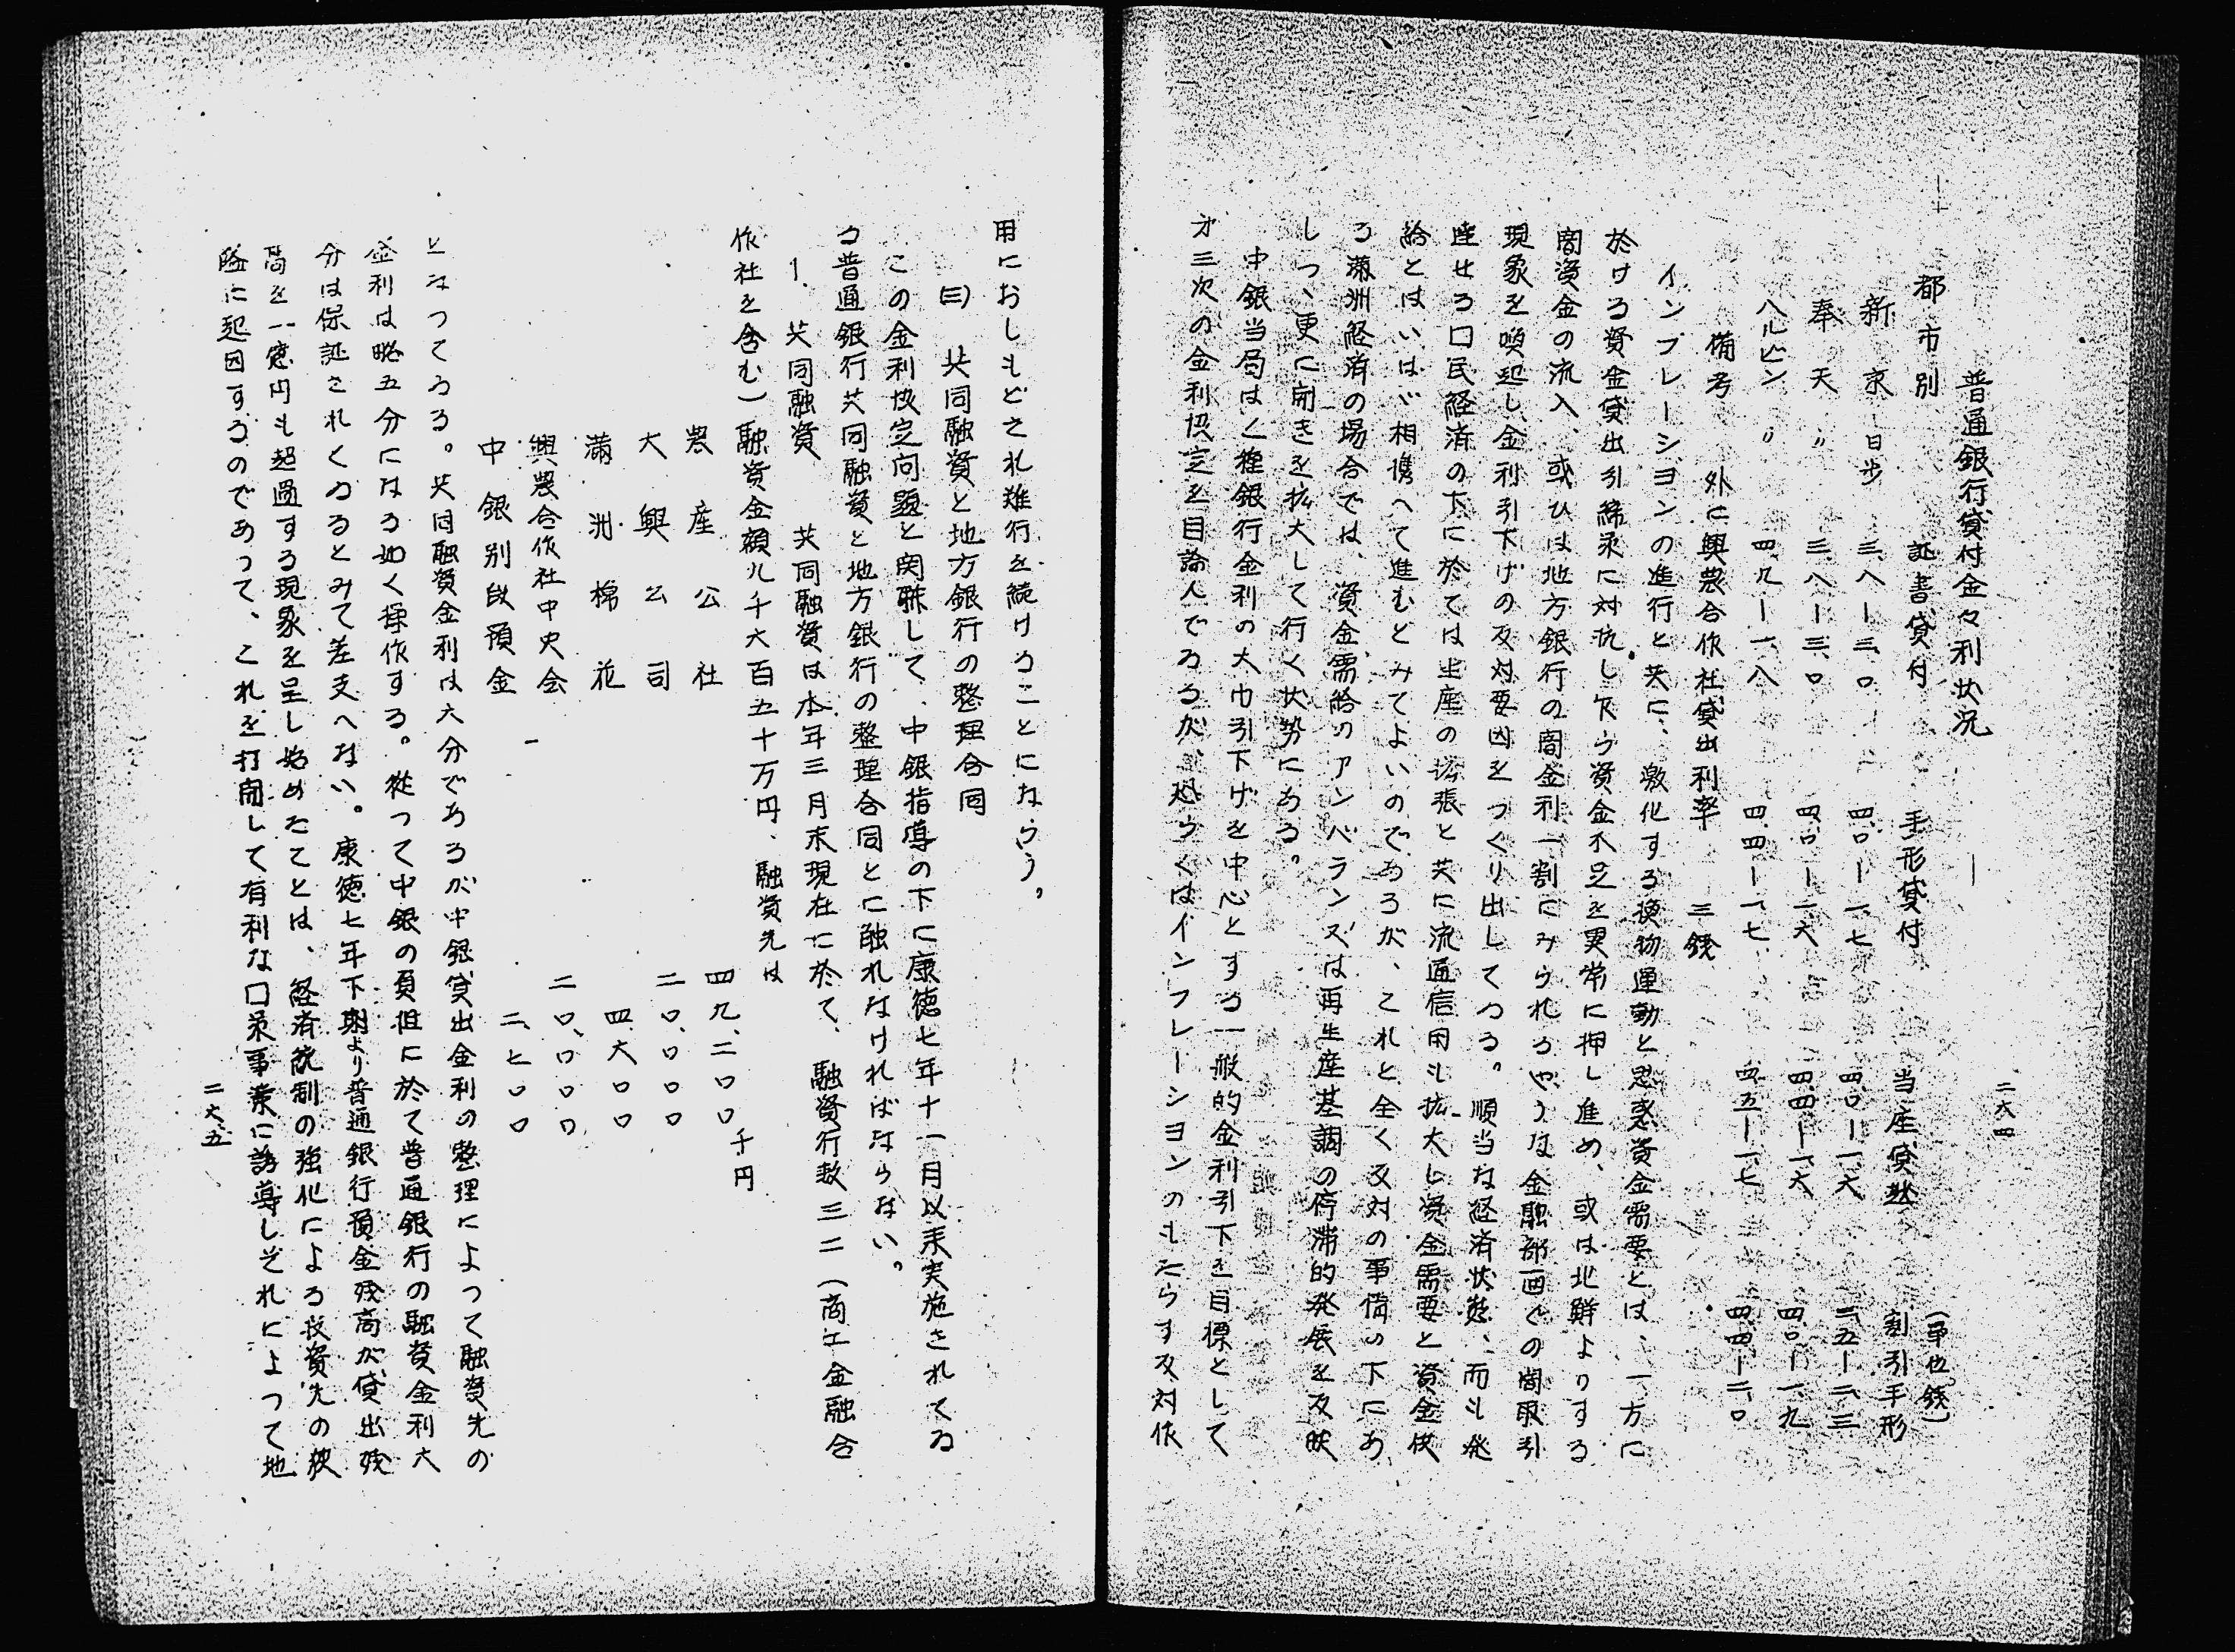 二六四
普通銀行貸付金々利状況
(単位銭)
都市別 証書貸付 手形貸付 当座貸越 割引手形
新京 日歩 三、八ー三、〇 四、〇ー一、七 四、〇ー一、六 二、五ー二、三
奉天 〃 三、八ー三、〇 四、〇ー一、六 四、四ー一、六 四、〇ー一、九
ハルピン 〃 四、九ー一、八 四、四ー一、七 四、五ー一、七 四、四ー二、〇
備考 外に興農合作社貸出利率 三銭
インフレーションの進行と共に、激化する換物運動と思惑資金需要とは、一方に
於ける資金貸出引締策に対抗し乍ら資金不足を異常に押し進め、或は北鮮よりする
闇資金の流入、或ひは地方銀行の闇金利一割にみられるやうな金融部面での闇取引
現象を喚起し金利引下げの反対要因をつくり出してゐる。順当な経済状態、而も発
達せる口民経済の下に於ては生産の拡張と共に流通信用も拡大し資金需要と資金供
給とはいはゞ相携へて進むとみてよいのであるが、これと全く反対の事情の下にあ
る満洲経済の場合では、資金需給のアンバランスは再生産基調の停滞的発展を反映
しつゝ更に開きを拡大して行く状勢にある。
中銀当局は之種銀行金利の大巾引下げを中心とする一般的金利引下を目標として
才三次の金利協定を目論んでゐるが、恐らくはインフレーションのもたらす反対作
用におしもどされ難行を続けることにならう。
(三) 共同融資と地方銀行の整理合同
この金利協定問題と関聯して、中銀指導の下に康徳七年十一月以来実施されてゐ
る普通銀行共同融資と地方銀行の整理合同とに触れなければならない。
1. 共同融資 共同融資は本年三月末現在に於て、融資行数三二(商工金融合
作社を含む)融資金額八千六百五十万円、融資先は
農産公社 四九、二〇〇千円
大興公司 二〇、〇〇〇
満洲棉花 四、六〇〇
興農合作社中央会 二〇、〇〇〇
中銀別段預金 二、七〇〇
となつてゐる。共同融資金利は六分であるが中銀貸出金利の整理によつて融資先の
金利は略五分になる如く操作する。従つて中銀の負担に於て普通銀行の融資金利六
分は保証されてゐるとみて差支へない。康徳七年下期より普通銀行預金残高が貸出残
高を一億円も超過する現象を呈し始めたことは、経済統制の強化による投資先の狭
隘に起因するのであつて、これを打開して有利な口策事業に誘導しそれによつて地
二六五